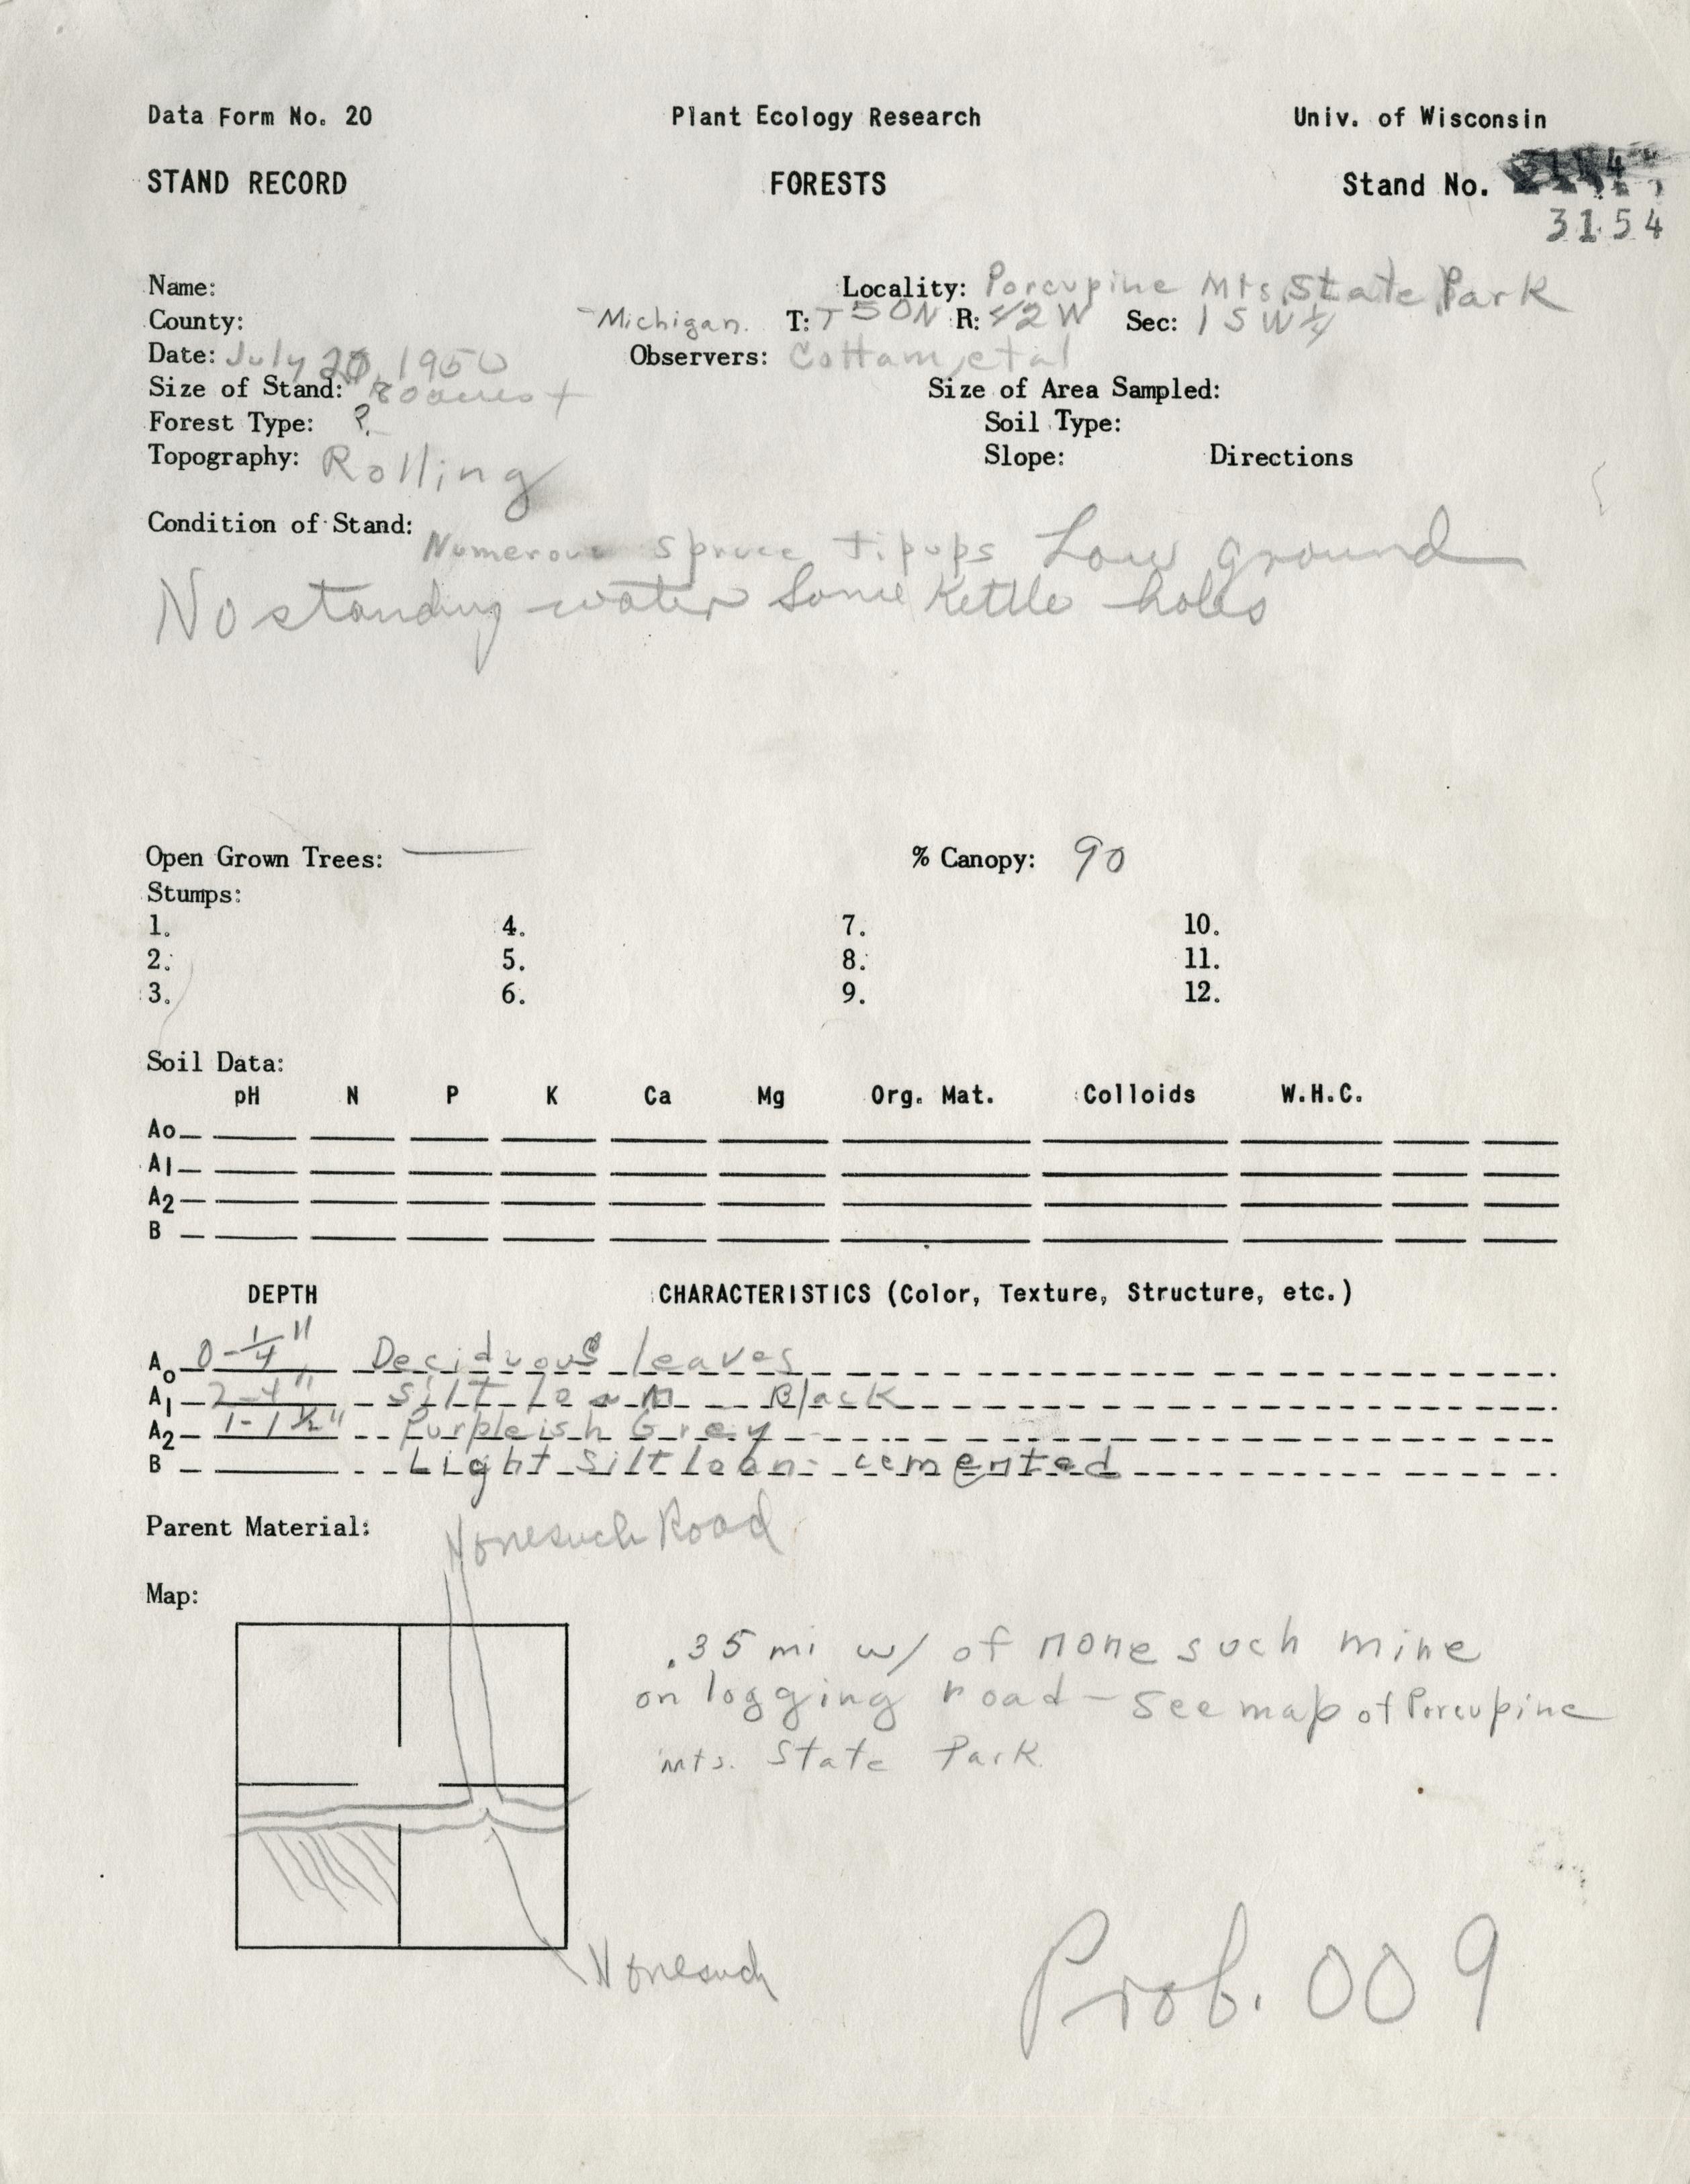 Data Form No. 20 Plant Ecology Research Univ. of Wisconsin
STAND RECORD FORESTS Stand No.
3154
Name: Locality: Porcupine Mts. State Park
County: Michigan. T: T50N R: 42W Sec: 1 SW¼
Date: July 20, 1950 Observers: Cottam, et al
Size of Stand: 80 acres + Size of Area Sampled:
Forest Type: ? Soil Type:
Topography: Rolling Slope: Directions
Condition of Stand: Numerous spruce tipups Low ground
No standing water Some Kettle holes
Open Grown Trees: — % Canopy: 90
Stumps:
1. 4. 7. 10.
2. 5. 8. 11.
3. 6. 9. 12.
Soil Data:
pH N P K Ca Mg Org. Mat. Colloids W.H.C.
Ao
A1
A2
B
DEPTH CHARACTERISTICS (Color, Texture, Structure, etc.)
Ao 0-1/4" Deciduous leaves
A1 2-4" silt loam Black
A2 1-1½" Purpleish Grey
B Light silt loam - cemented
Parent Material: Nonesuch Road
Map:
.35 mi w/ of none such mine
on logging road - see map of Porcupine
mts. State Park
Nonesuch
Prob. 009